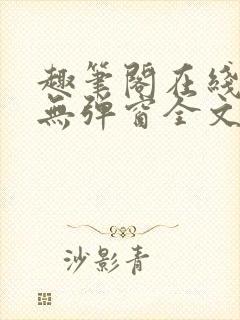 趣筆閣在綫
無彈窗全文
沙影青